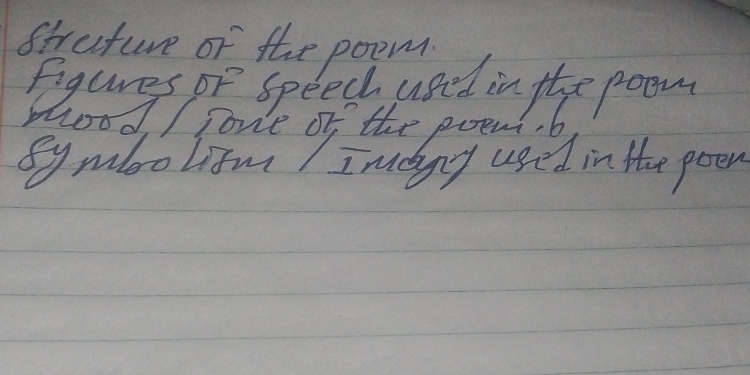 Struture of the poem.
Figures of speech used in the poem
mood / Tone of the poem. b
Symbolism / Imagry used in the poem